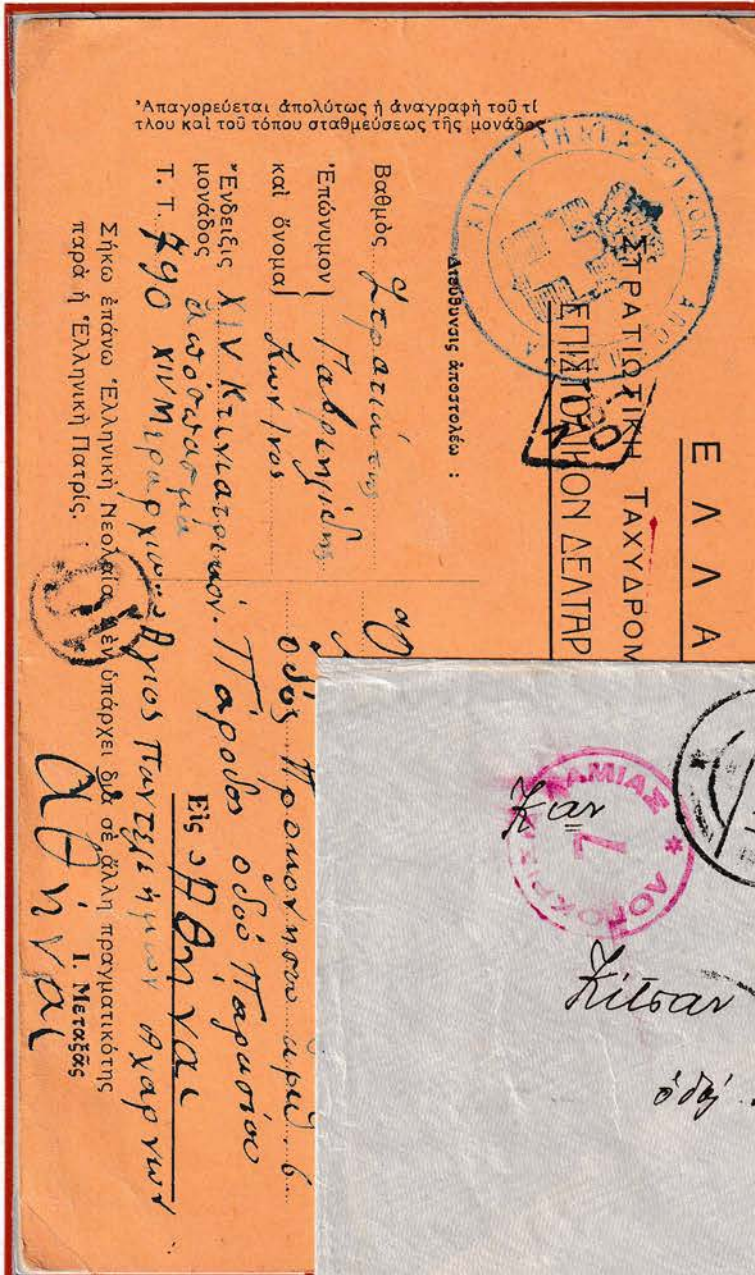 Ε Λ Λ Α
ΣΤΡΑΤΙΩΤΙΚΗ ΤΑΧΥΔΡΟΜ
ΕΠΙΣΤΟΛΙΚΟΝ ΔΕΛΤΑΡ
Ἀπαγορεύεται ἀπολύτως ἡ ἀναγραφὴ τοῦ τί
τλου καὶ τοῦ τόπου σταθμεύσεως τῆς μονάδος
Διεύθυνσις ἀποστολέω :
Βαθμὸς Στρατιώτης
Ἐπώνυμον Γαβριηλίδης
καὶ ὄνομα Κων/νος
Ἔνδειξις XIV Κτηνιατρικόν
μονάδος ἀπόσπασμα
Τ. Τ. 790 XIV Μεραρχίας
ὁδὸς Προκονήσου ἀριθ. 6
Πάροδος ὁδοῦ Παρασίου
Εἰς Ἀθήναι
Ἅγιος Παντελεήμων Ἀχαρνών
Σήκω ἐπάνω Ἑλληνικὴ Νεολαία δὲν ὑπάρχει διὰ σὲ ἄλλη πραγματικότης
παρὰ ἡ Ἑλληνικὴ Πατρίς.
Ι. Μεταξᾶς
Ἀθήναι
ΛΑΜΙΑΣ * ΛΟΓΟΚΡΙΣ
7
Κίτσαν
ὁδός